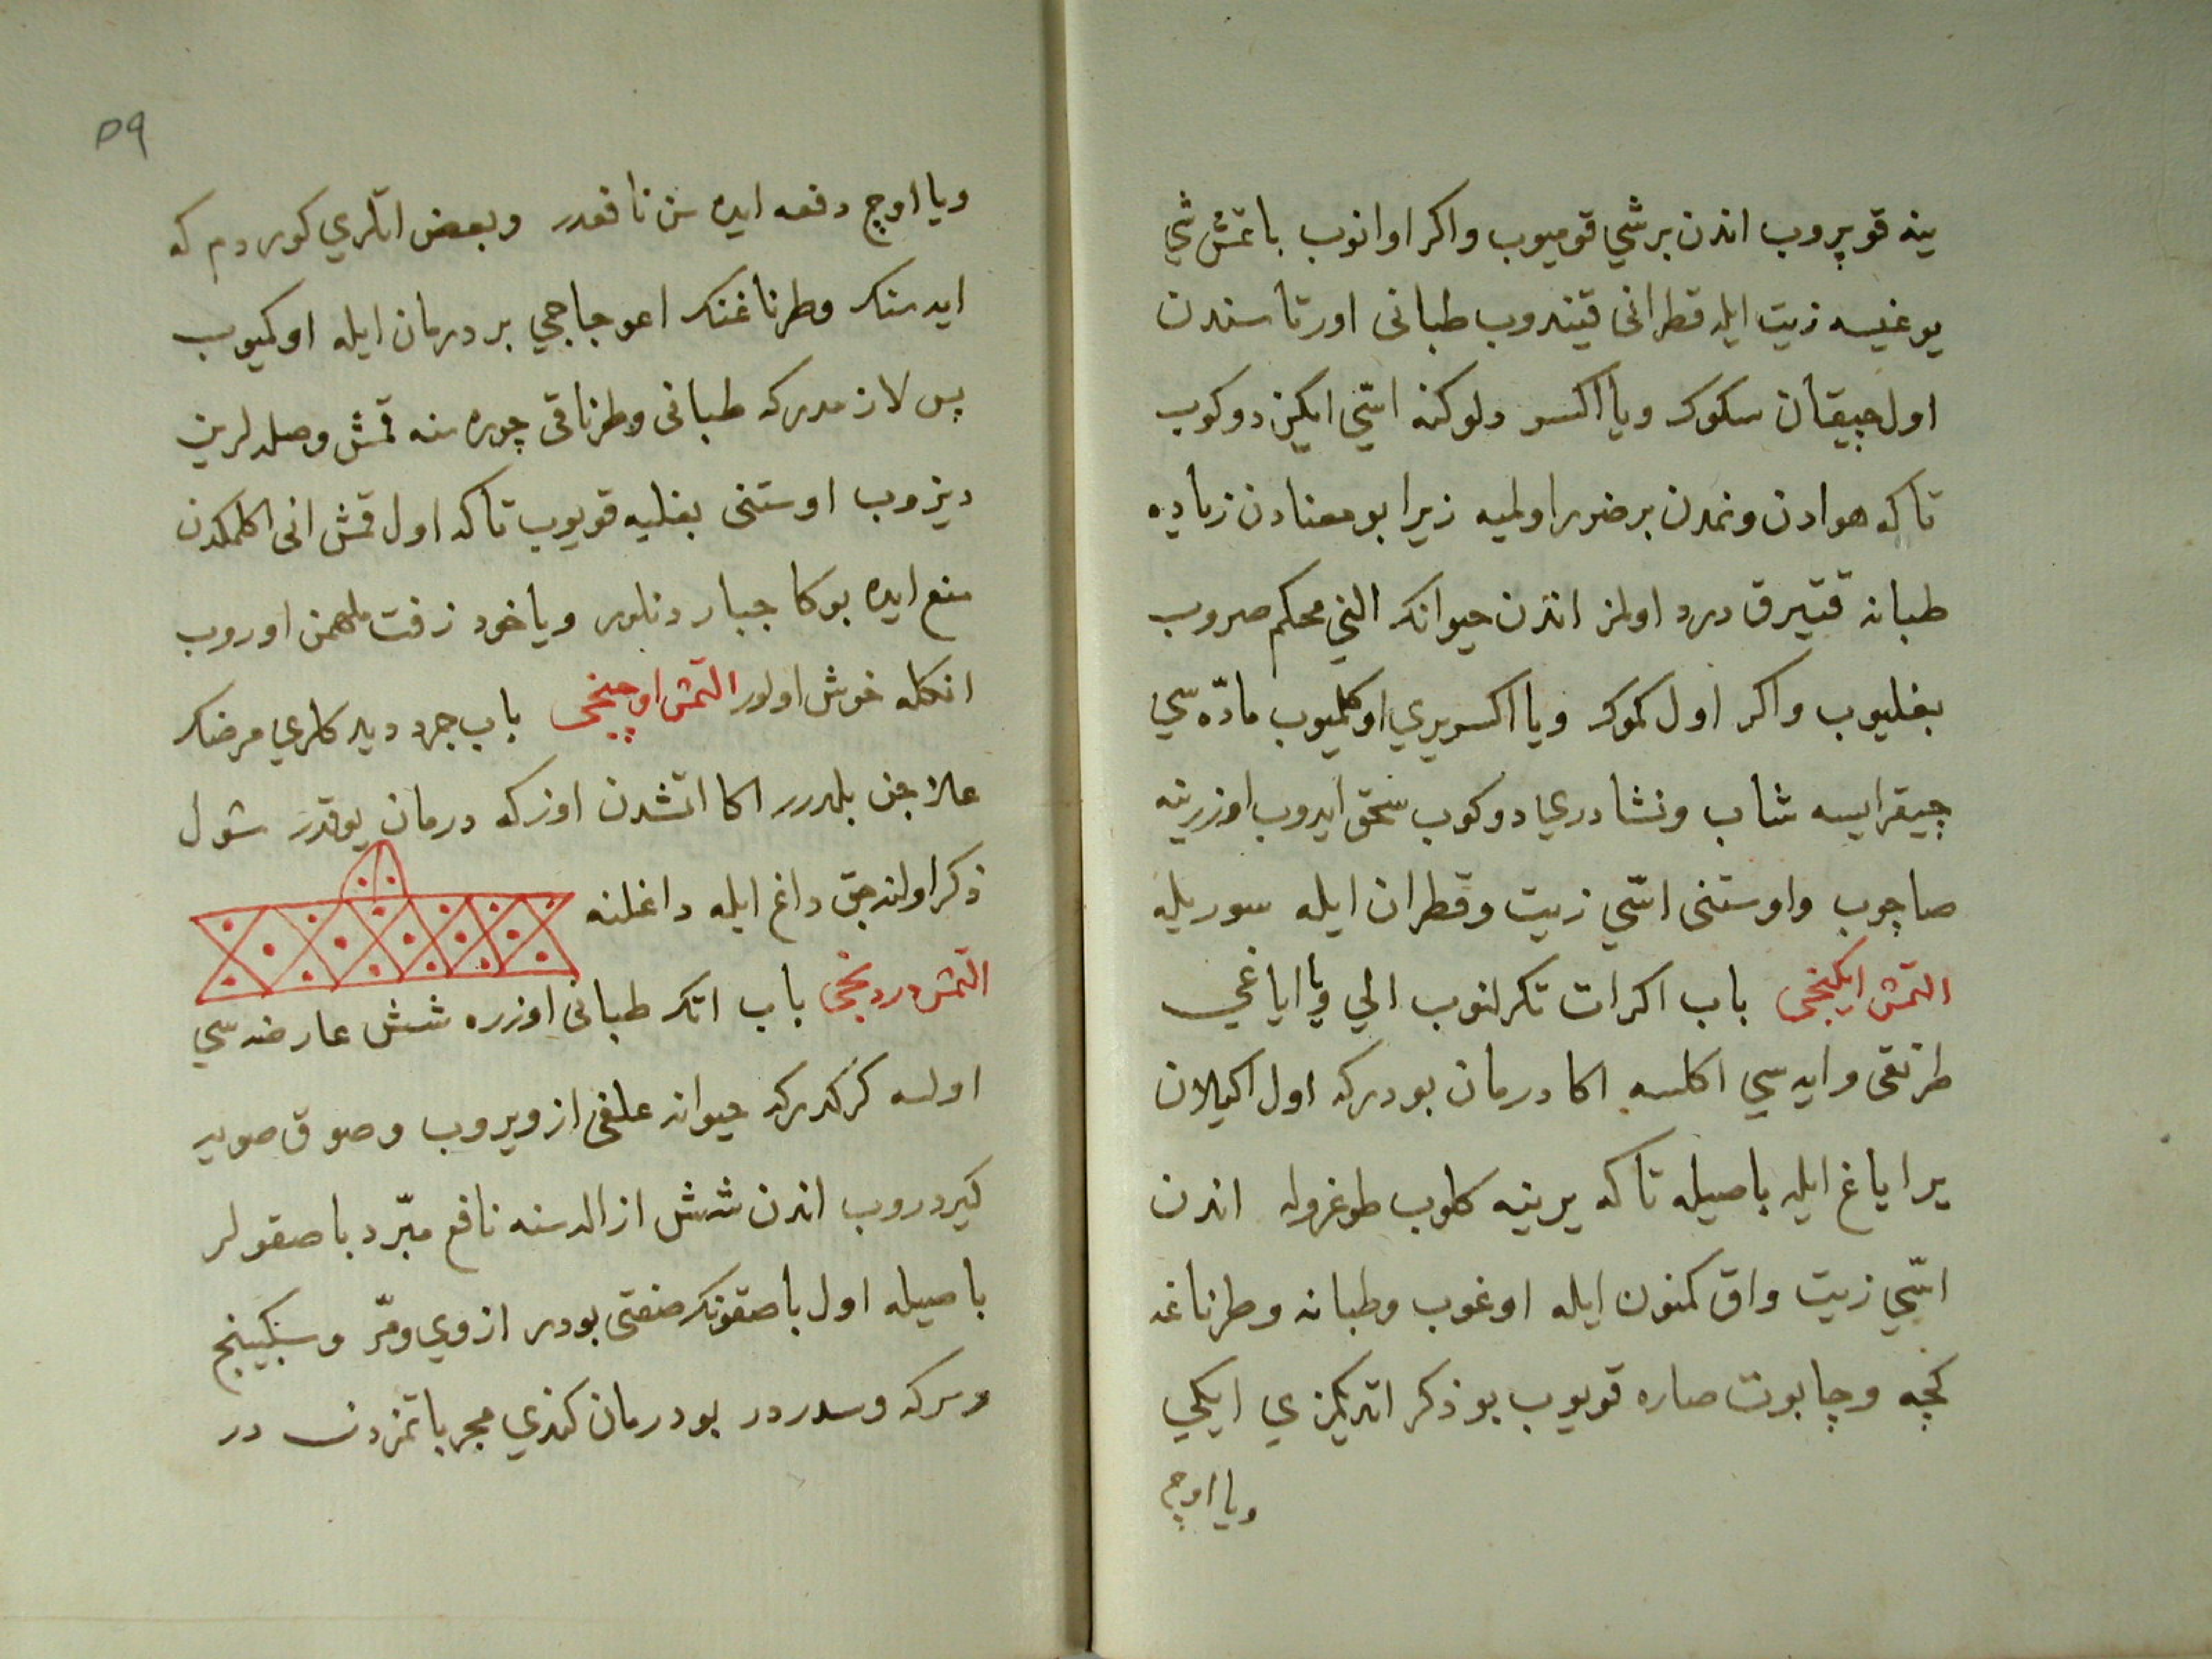 ينه قوپروب اندن برشي قوميوب واكر اوانوب باتمش شي
يوغيسه زيت ايله قطرانى قيندروب طبانى اورتاسندن
اول جيقان سكوك ويا اكسر دلوكنه اسّي ايكن دوكوب
تاكه هوادن ونمدن برضرر اولميه زيرا بو معنادن زياده
طبانه قتيرق درد اولمز اندن حيوانك الني محكم صروب
بغليوب واكر اول كموك ويا اكسريري اوكلميوب مادّه سي
جيقرايسه شاب ونشادري دوكوب سحق ايدوب اوزرينه
صاچوب واوستنى اسّي زيت وقطران ايله سوريله
التمش ايكنجى باب اكر ات تكرلنوب الي ويا اياغي
طرنقى وايه سي اكلسه اكا درمان بودركه اول اكيلان
ير اياغ ايله باصيله تاكه يرينه كلوب طوغروله اندن
اسّي زيت واق كمنون ايله اوغوب وطبانه وطرناغه
كچه وچابوت صاره قويوب بو ذكر اتديكمزي ايكي
ويا اوچ
٥٩
ويا اوچ دفعه ايده سن نافعدر وبعض اتلري كوردم كه
ايدسنك وطرناغنك اعوجاجي بر درمان ايله اوكميوب
پس لازمدركه طبانى وطرناقى چوره سنه قمش وصلدلرين
ديزوب اوستنى بغليه قويوب تاكه اول قمش انى اكلمكدن
منع ايده بوكا جبار دنلور وياخود زفت ملهمن اوروب
انكله خوش اولور التمش اوچنجى باب جرد ديدكلري مرضك
علاجن بلدرر اكا اتشدن اوزكه درمان يوقدر شول
ذكر اولنه جق داغ ايله داغلنه
التمش دردنجى باب اتك طبانى اوزره شش عارضه سي
اولسه كركدركه حيوانه علفى از ويروب وصوق صويه
كيردروب اندن شش ازالدسنه نافع مبرّد باصقولر
باصيله اول باصقونك صفتى بودر ازوي ومرّ وسبكينج
وسركه وسدردر بو درمان كندي مجرباتمزدن در